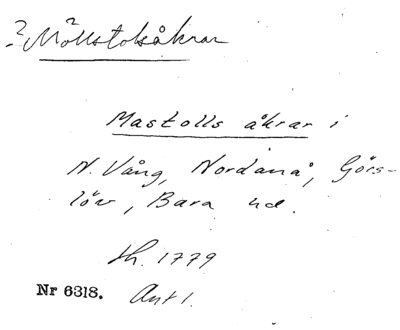 ? Möllstoksåkrar
Mastolls åkrar i
N. Vång, Nordanå, Görs-
löv, Bara hd.
Lh. 1779
Nr 6318. Ant 1.